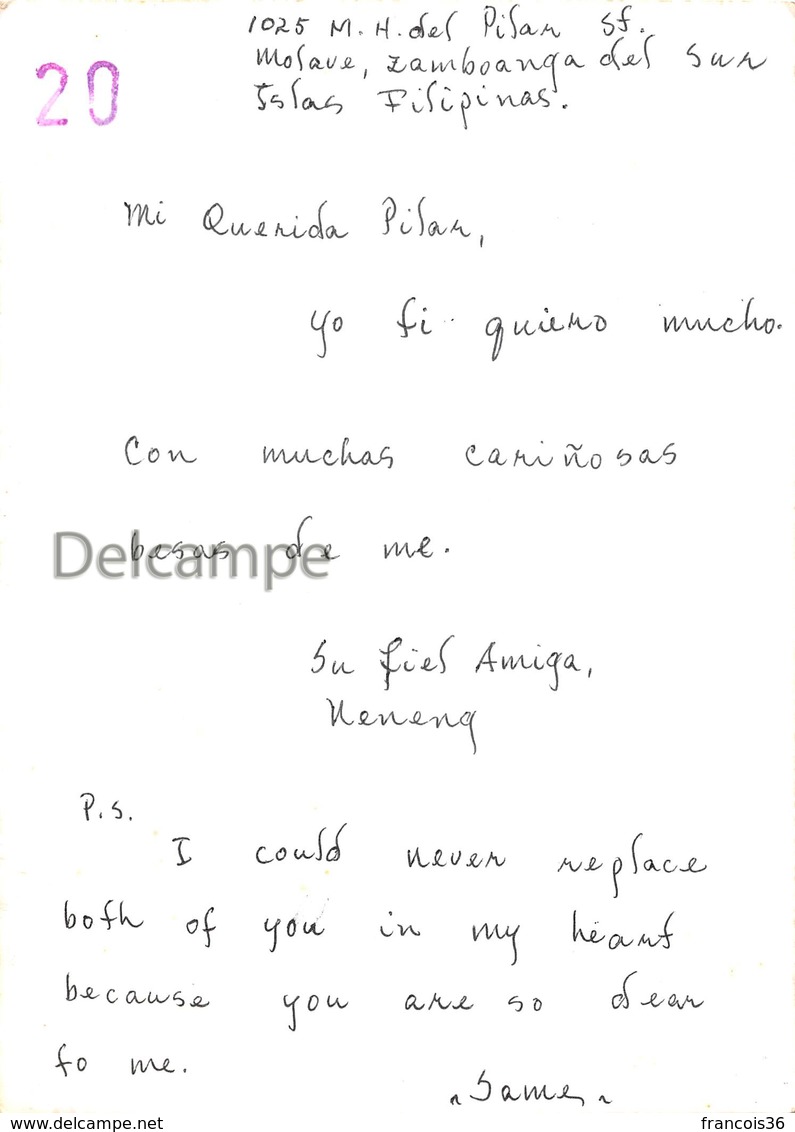 1025 M. H. del Pilar St.
20
Molave, Zamboanga del Sur
Islas Filipinas.
Mi Querida Pilar,
yo ti quiero mucho.
Con muchas cariñosas
besas de me.
Delcampe
Su fiel Amiga,
Neneng
P.S.
I could never replace
both of you in my heart
because you are so dear
to me.
"Same"
www.delcampe.net
francois36